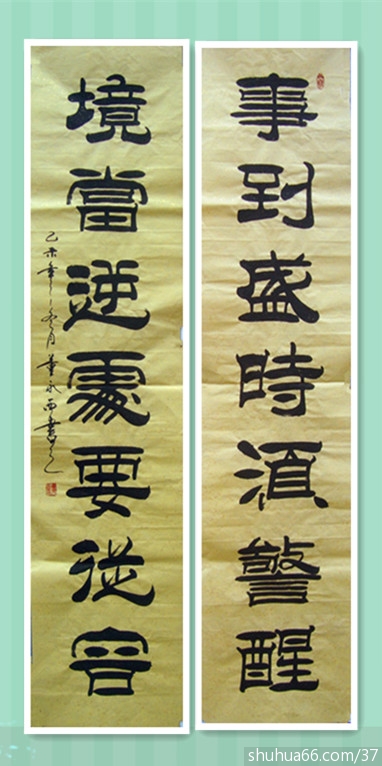 事到盛時湏警醒
境當逆處要從容
乙未年冬月董永西書
shuhua66.com/37